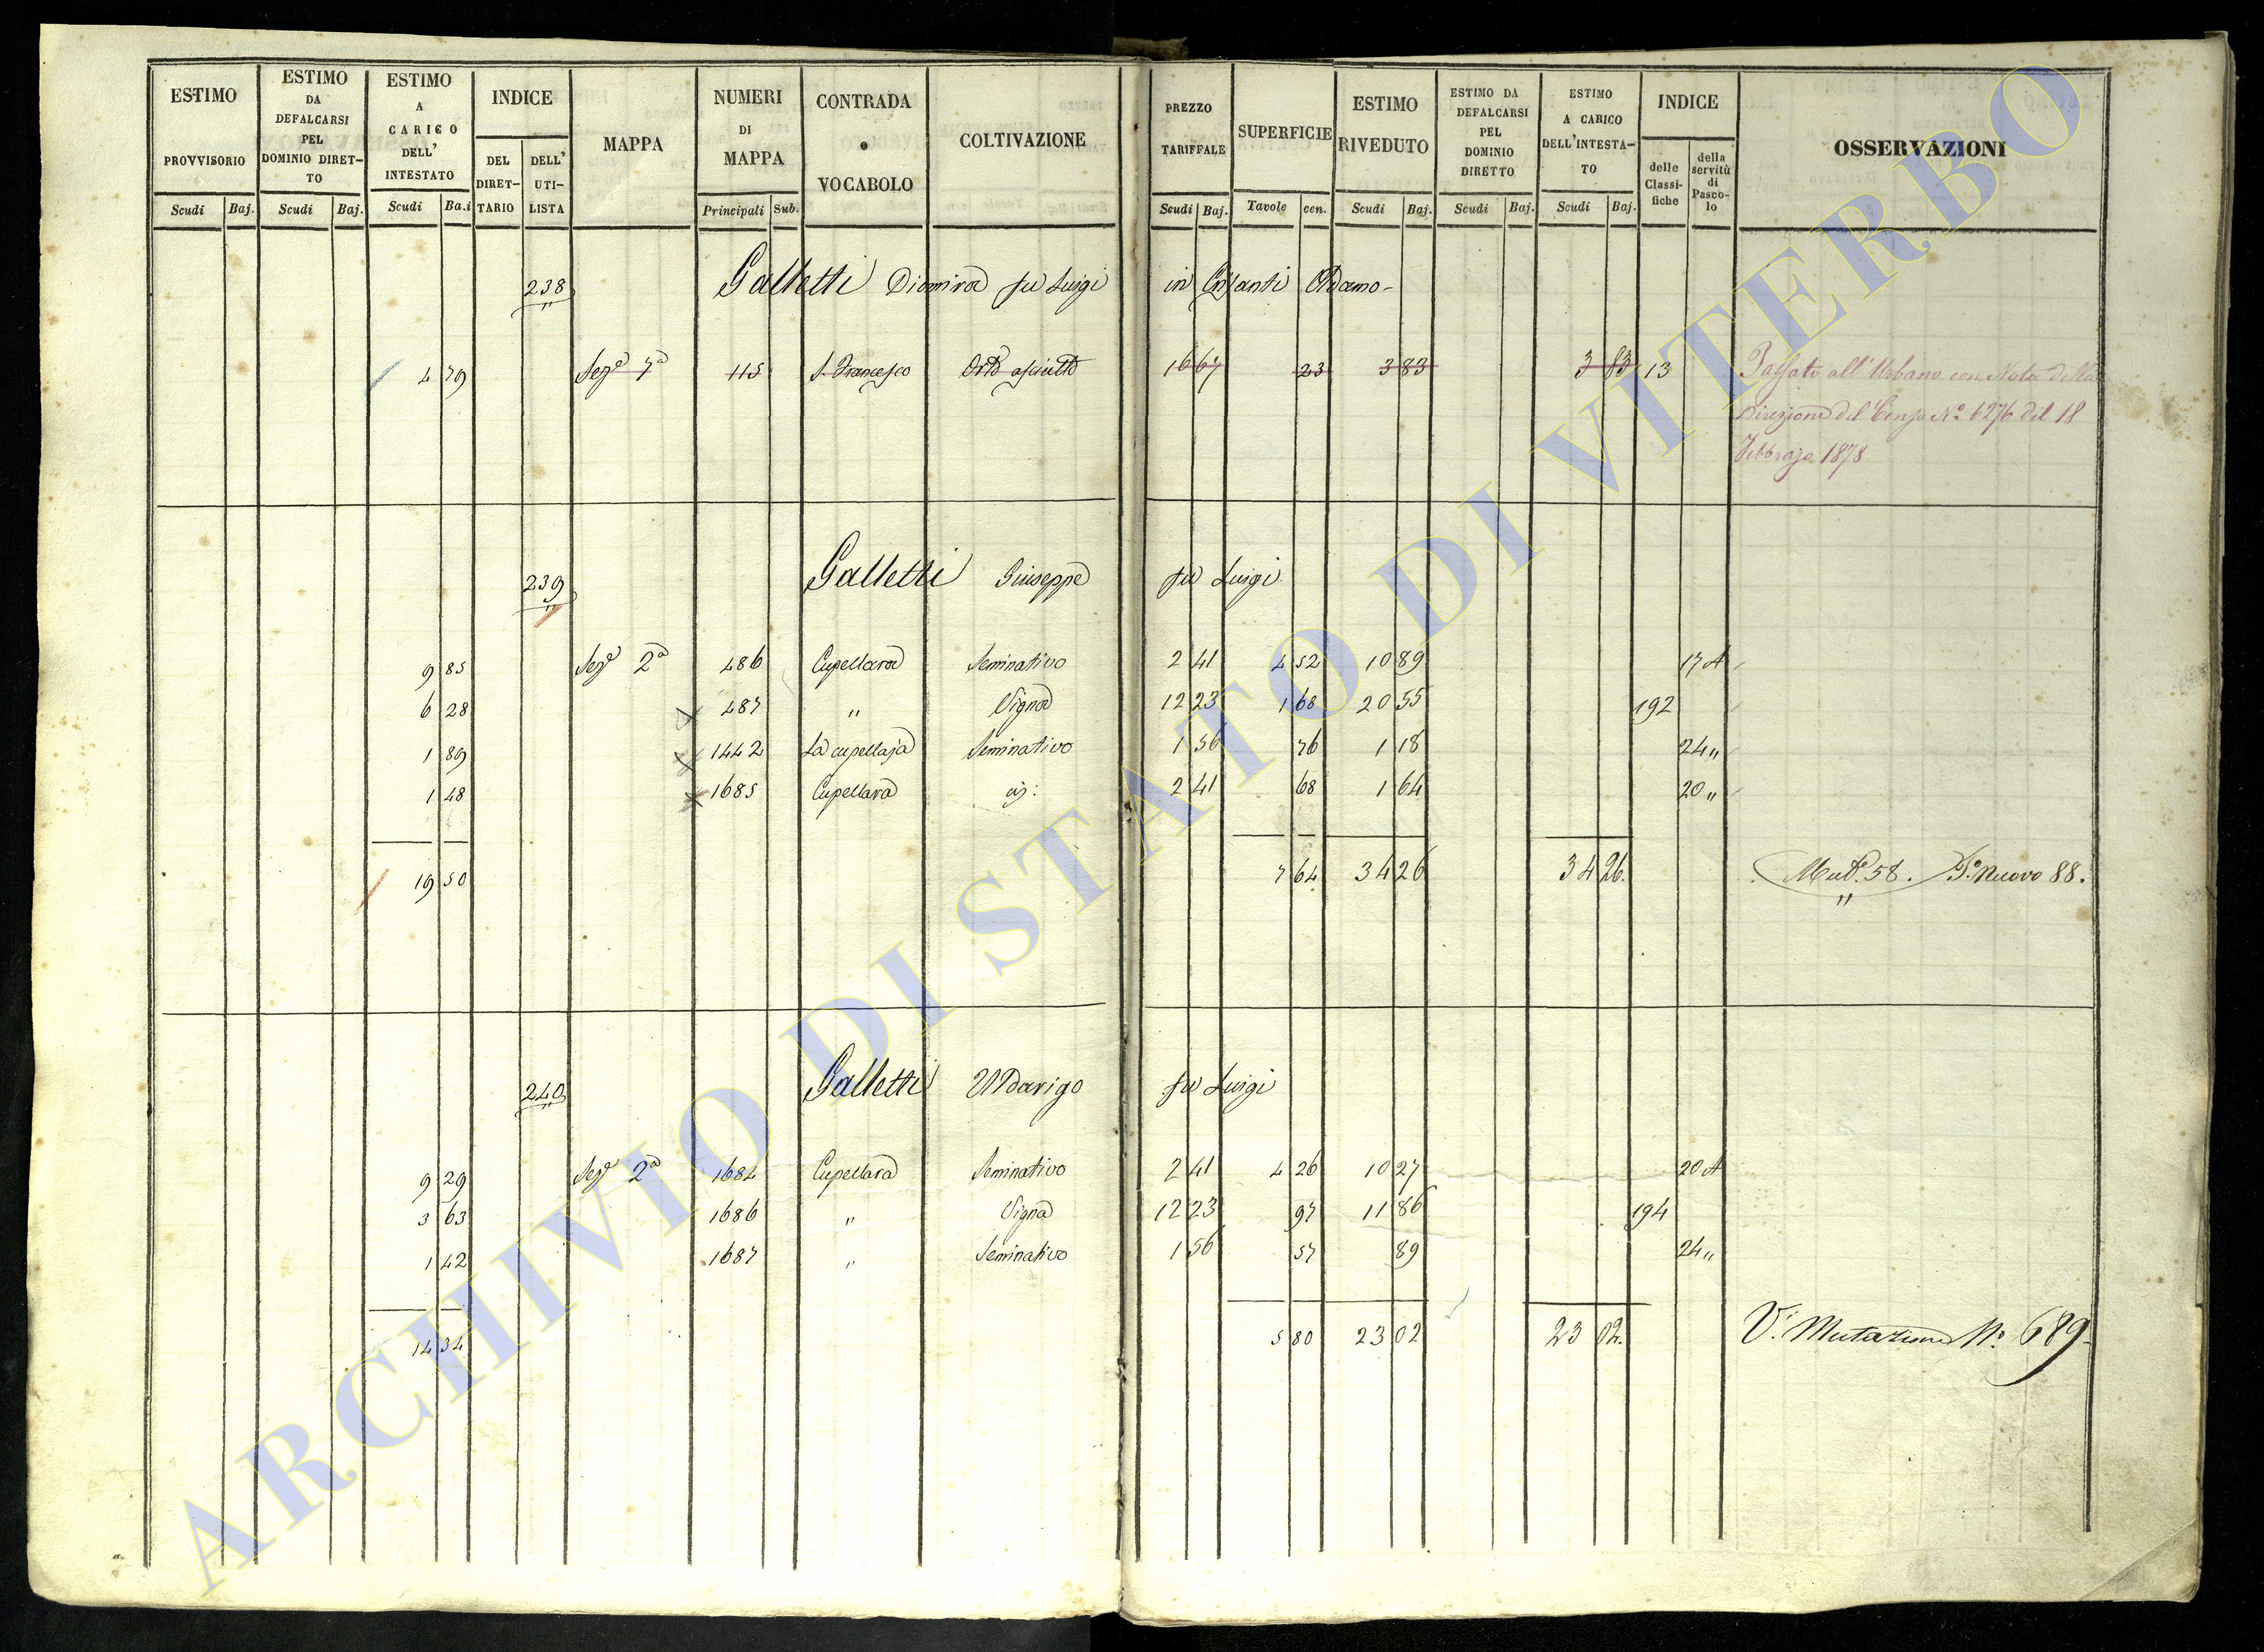 ESTIMO PROVVISORIO Scudi Baj.
ESTIMO DA DEFALCARSI PEL DOMINIO DIRETTO Scudi Baj.
ESTIMO A CARICO DELL' INTESTATO Scudi Ba.i
INDICE DEL DIRETTARIO DELL' UTILISTA
MAPPA
NUMERI DI MAPPA Principali Sub.
CONTRADA o VOCABOLO
COLTIVAZIONE
PREZZO TARIFFALE Scudi Baj.
SUPERFICIE Tavole cen.
ESTIMO RIVEDUTO Scudi Baj.
ESTIMO DA DEFALCARSI PEL DOMINIO DIRETTO Scudi Baj.
ESTIMO A CARICO DELL'INTESTATO Scudi Baj.
INDICE delle Classifiche della servitù di Pascolo
OSSERVAZIONI
238 Galletti Diomira fu Luigi in Adamo
4 79 Sez.e 7a 115 S. Francesco Orto asciutto 16 67 23 3 83 3 83 13 Passato all'Urbano con Nota della
Direzione del Censo No. 6276 del 18
Febbrajo 1878
239 Galletti Giuseppe fu Luigi
9 85 Sez.e 2a 486 Cupellara Seminativo 2 41 4 52 10 89 17 A
6 28 487 " Vigna 12 23 1 68 20 55 192
1 89 1442 La cupellaja Seminativo 1 56 76 1 18 24 "
1 48 1685 Cupellara 2 41 68 1 64 20 "
19 50 7 64 34 26 34 26. Mut.e 58. Nuovo 88.
240 Galletti Uldarigo fu Luigi
9 29 Sez.e 2a 1684 Cupellara Seminativo 2 41 4 26 10 27 20 A
3 63 1686 " Vigna 12 23 97 11 86 194
1 42 1687 " Seminativo 1 56 57 89 24 "
14 34 5 80 23 02 23 02. V. Mutazione No. 689
ARCHIVIO DI STATO DI VITERBO